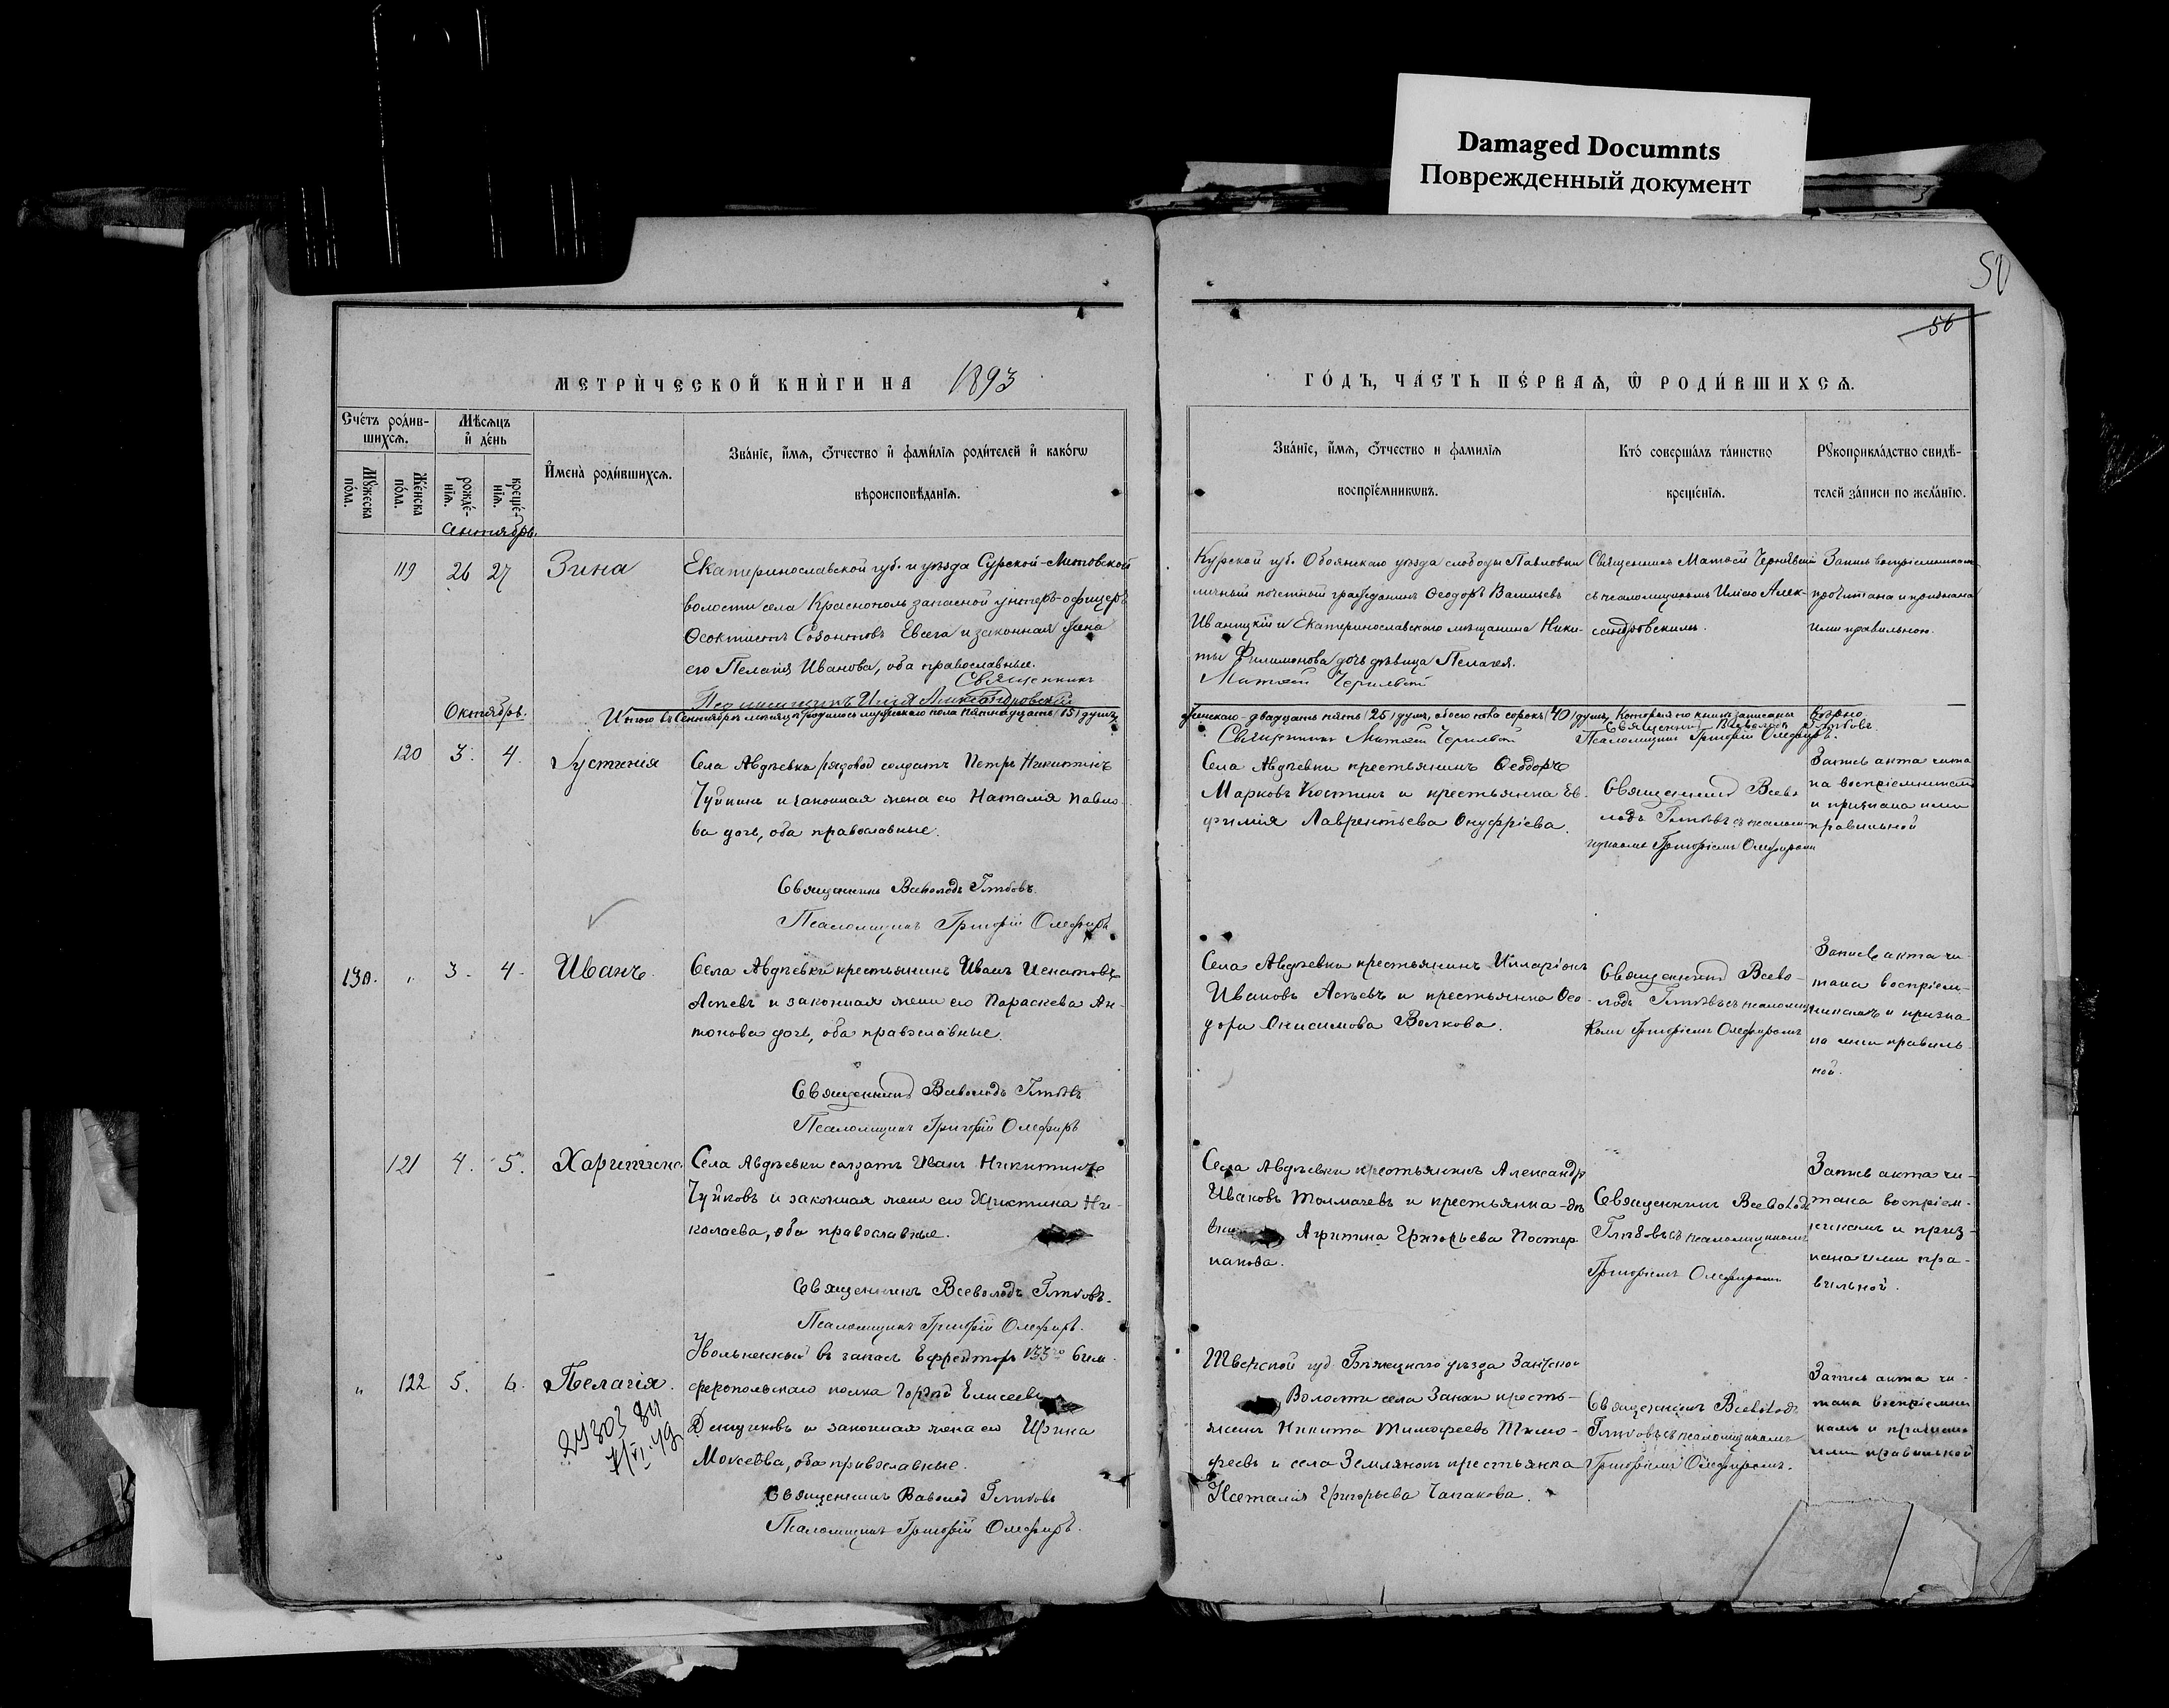 Damaged Documnts
Поврежденный документ
50
56
МЕТРИЧЕСКОЙ КНИГИ НА 1893
ГОДЪ, ЧАСТЬ ПЕРВАЯ, Ѿ РОДИВШИХСЯ.
Счетъ родив-
шихся.
Мужеска пола.
Женска пола.
Мѣсяцъ
и день
рожде-
нія.
креще-
нія.
Имена родившихся.
Званіе, имя, отчество и фамилія родителей и какогѡ
вѣроисповѣданія.
Званіе, имя, отчество и фамилія
воспріемникѡвъ.
Кто совершалъ таинство
крещенія.
Рукоприкладство свидѣ-
телей записи по желанію.
Сентябрь.
119 26 27 Зина
Екатеринославской губ. и уѣзда Сурской-Литовской
волости села Краснополь запасной унтеръ-офицеръ
Ѳеоктистъ Созонтовъ Евсега и законная жена
его Пелагія Иванова, оба православные.
Священникъ
Псаломщикъ Илія Александровскій
Курской губ. Обоянскаго уѣзда слободы Павловки
личный почетный гражданинъ Ѳеодоръ Васильевъ
Иваницкій и Екатеринославскаго мѣщанина Ники-
ты Филимонова дочь дѣвица Пелагея.
Матѳей Чернявскій
Священникъ Матѳей Чернявскій
съ псаломщикомъ Иліею Алек-
сандровскимъ.
Запись воспріемниками
прочитана и признана
ими правильною.
Октябрь.
Итого въ Сентябрѣ мѣсяцѣ родилось мужскаго пола пятнадцать (15) душъ,
женскаго - двадцать пять (25) душъ, обоего пола сорокъ (40) душъ, которыя по книгѣ записаны вѣрно.
Священникъ Матѳей Чернявскій
Священникъ Всеволодъ Глѣбовъ.
Псаломщикъ Григорій Олефиръ.
120 3. 4. Іустинія
Села Авдѣевки рядовой солдатъ Петръ Никитинъ
Чуйкинъ и законная жена его Наталія Павло-
ва дочь, оба православные.
Священникъ Всеволодъ Глѣбовъ.
Псаломщикъ Григорій Олефиръ
Села Авдѣевки крестьянинъ Ѳеодоръ
Марковъ Костинъ и крестьянка Ев-
фимія Лаврентьева Онуфріева.
Священникъ Всево-
лодъ Глѣбовъ съ псалом-
щикомъ Григоріемъ Олефиромъ
Запись акта чита
на воспріемниками
и признана ими
правильной
130. " 3. 4. Иванъ.
Села Авдѣевки крестьянинъ Иванъ Игнатовъ
Асѣевъ и законная жена его Параскева Ан-
тонова дочь, оба православные.
Священникъ Всеволодъ Глѣбовъ
Псаломщикъ Григорій Олефиръ
Села Авдѣевки крестьянинъ Илларіонъ
Ивановъ Асѣевъ и крестьянка Ѳео-
дора Онисимова Волкова.
Священникъ Всево-
лодъ Глѣбовъ съ псаломщи
комъ Григоріемъ Олефиромъ
Запись акта чи-
тана воспріем-
никамъ и призна-
на ими правиль-
ной.
121 4. 5. Харитина
Села Авдѣевки солдатъ Иванъ Никитинъ
Чуйковъ и законная жена его Христина Ни-
колаева, оба православные.
Священникъ Всеволодъ Глѣбовъ.
Псаломщикъ Григорій Олефиръ.
Села Авдѣевки крестьянинъ Александръ
Ивановъ Толмачевъ и крестьянка-дѣ
вица Агрипина Григорьева Постер
накова.
Священникъ Всеволодъ
Глѣбовъ съ псаломщикомъ
Григоріемъ Олефиромъ
Запись акта чи-
тана воспріем-
никамъ и приз-
нана ими пра-
вильной.
" 122 5. 6. Пелагія.
Увольненный въ запасъ Ефрейторъ 133го Сим-
феропольскаго полка Гордѣй Елисеевъ
Денщиковъ и законная жена его Ирина
Моисеева, оба православные.
Священникъ Всеволод Глѣбовъ
Псаломщикъ Григорій Олефиръ.
Тверской губ. Бѣжецкаго уѣзда
Волости села кресть-
янинъ Никита Тимофеевъ Тимо-
феевъ и села Землянокъ крестьянка
Наталія Григорьева Чапакова.
Священникъ Всеволодъ
Глѣбовъ съ псаломщикомъ
Григоріемъ Олефиромъ.
Запись акта чи-
тана воспріемни
камъ и признана
ими правильной